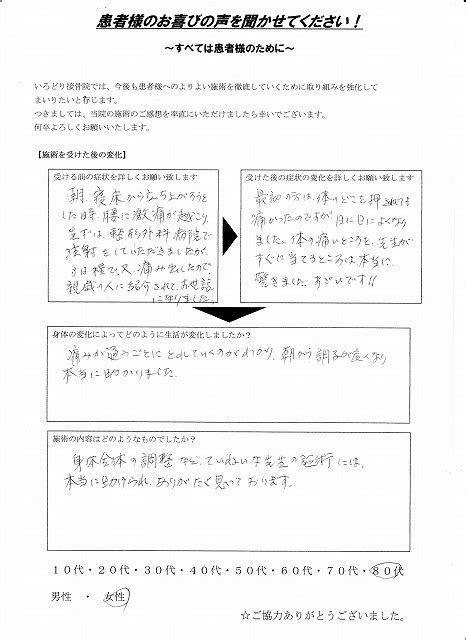 患者様のお喜びの声を聞かせてください！
～すべては患者様のために～
いろどり接骨院では、今後も患者様へのよりよい施術を徹底していくために取り組みを強化して
まいりたいと存じます。
つきましては、当院の施術のご感想を率直にいただけましたら幸いでございます。
何卒よろしくお願いいたします。
【施術を受けた後の変化】
受ける前の症状を詳しくお願い致します
朝、寝床から立ち上がろうと
した時、腰に激痛が起こり、
先ずは、整形外科病院で
注射をしていただきましたが、
3日程で、又、痛み出したので、
親戚の人に紹介されて、お世話
になりました。
受けた後の症状の変化を詳しくお願い致します
最初の方は、体のどこを押されても
痛かったのですが、日に日によくなり
ました。体の痛いところを、先生が
すぐに当てるところは、本当に、
驚きました。すごいです!!
身体の変化によってどのように生活が変化しましたか？
痛みが通うごとにとれていくのがわかり、朝から調子が良くなり
本当に助かりました。
施術の内容はどのようなものでしたか？
身体全体の調整など、ていねいな先生の施術には、
本当に助けられ、ありがたく思っております。
１０代・２０代・３０代・４０代・５０代・６０代・７０代・８０代
男性　・　女性
☆ご協力ありがとうございました。